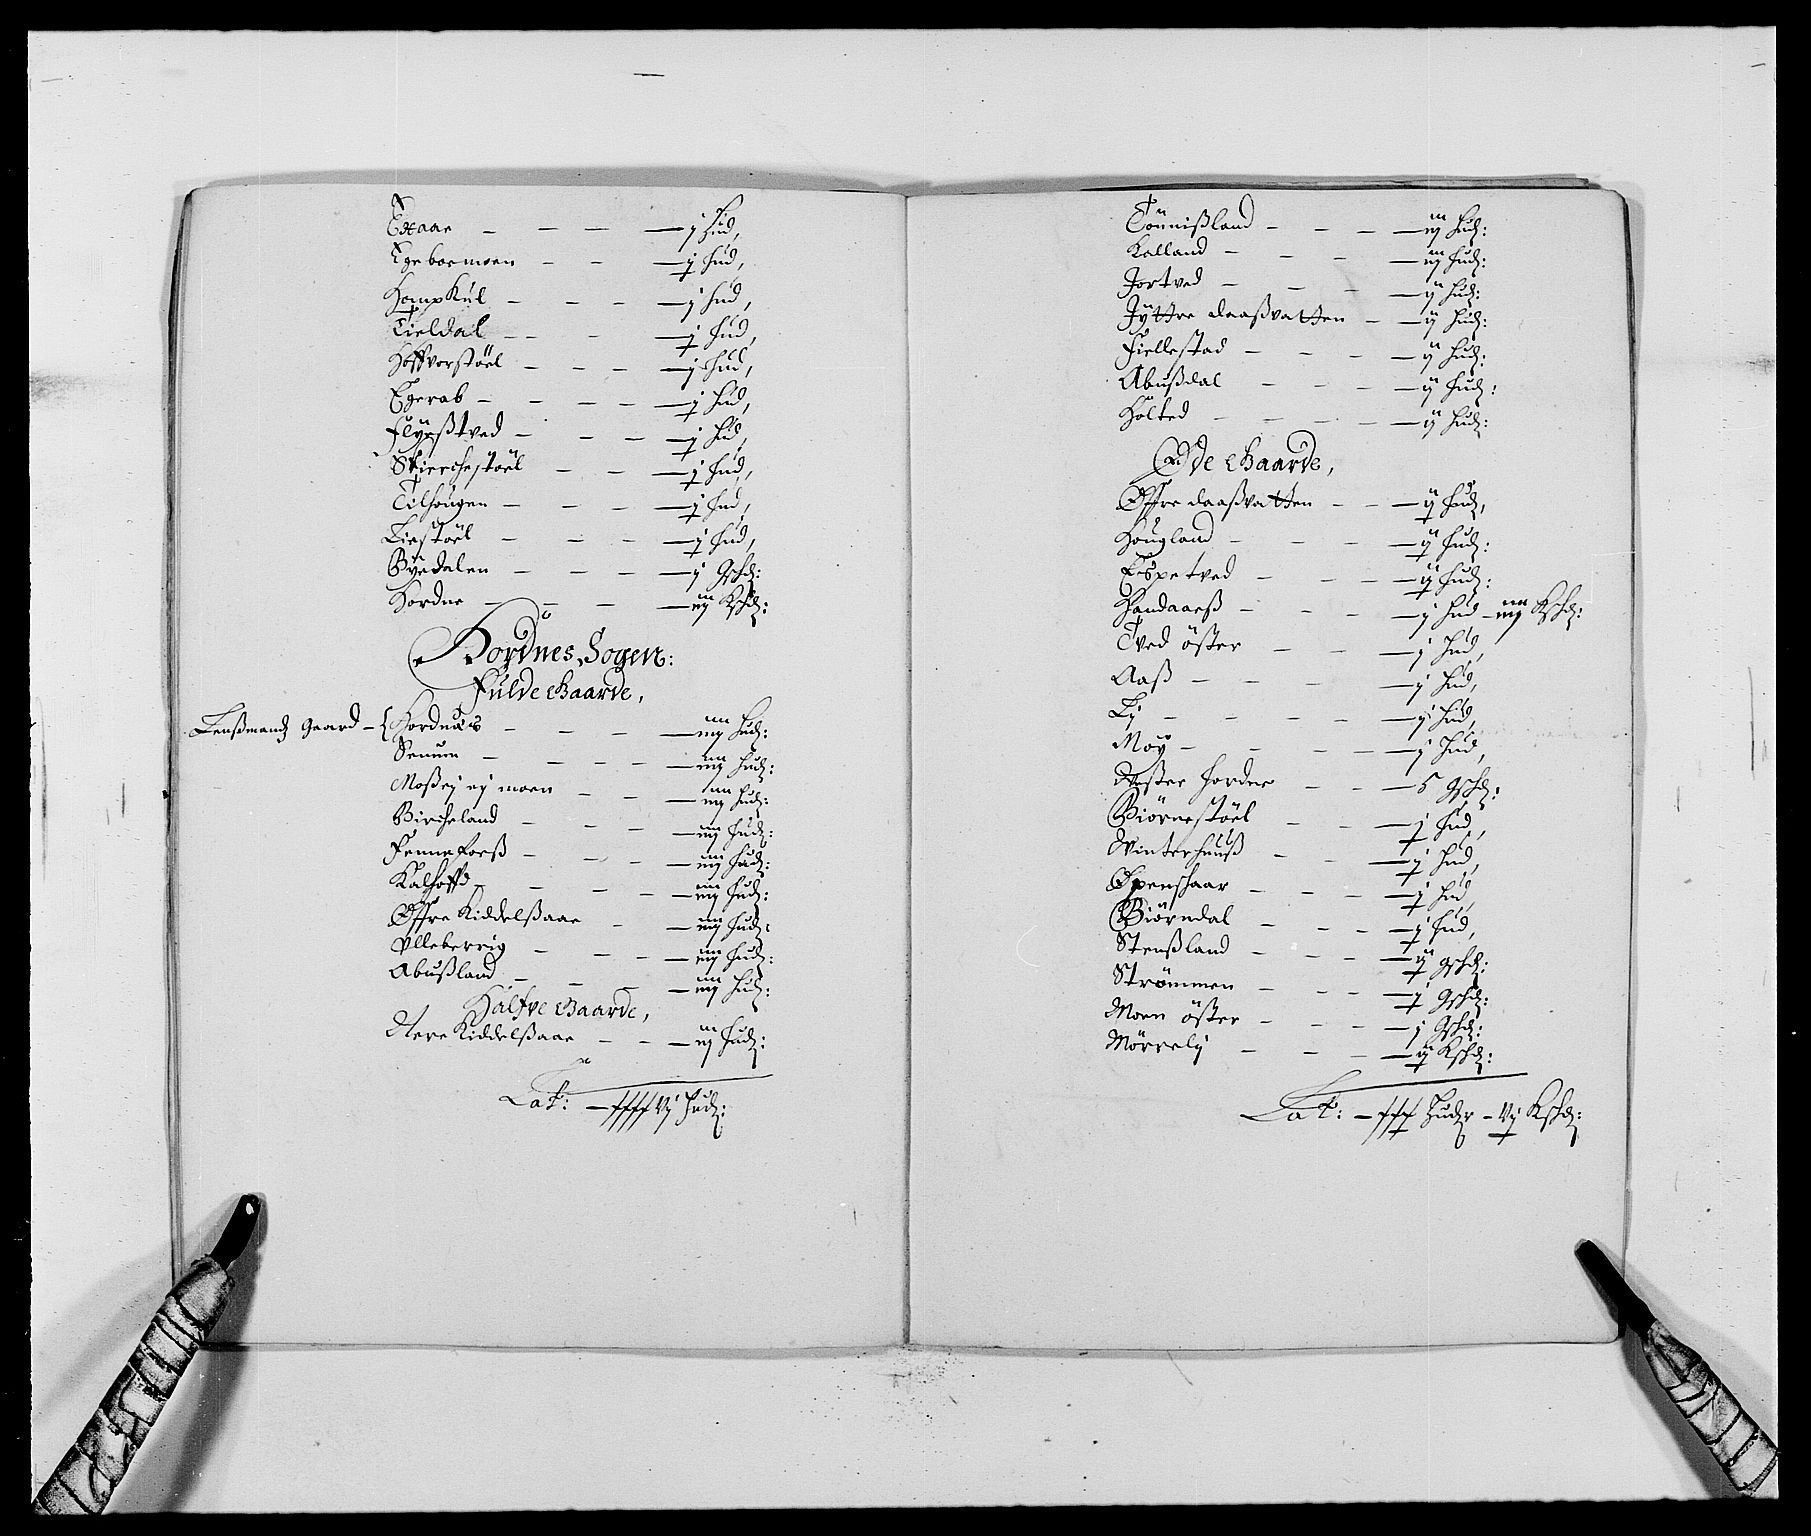 Exaae – – – – j Hud,
Egeboemoen – – – j Hud,
Hampkul – – – – j Hud,
Tieldal – – – – j Hud,
Hoffvorstøel – – – – j Hud,
Egerab – – – – j Hud,
Flyeßtved – – – – j Hud,
Skierchestøel – – – j Hud,
Tilhougen – – – – j Hud,
Liestøel – – – – j Hud,
Byedalen – – – – j Gschd:
Hordne – – – – iij Kschd:
Hordnes Sogen:
Fulde Gaarde,
Lenßmandz Gaard – { Hordnæs – – – iiij Hud:
Senum – – – – iiij Hud:
Moßej ej moen – – – iiij Hud:
Bircheland – – – – iiij Hud:
Fenneforß – – – iiij Hud:
Kalhoffd – – – – iiij Hud:
Øffre Kiddelßaae – – iiij Hud:
Ulleberrig – – – – iiij Hud:
Abußland – – – – iiij Hud:
Halfve Gaarde,
Nere Kiddelßaae – – – iij Hud:
Lat: – ffff Vj Hud:
Tounißland – – – – iij Hud:
Kalland – – – – iij Hud:
Jortved – – – – ij Hud:
Jyttre daaßvatten – – ij Hud:
Fiellestad – – – – ij Hud:
Abußdal – – – – ij Hud:
Holted – – – – ij Hud:
Øde Gaarde,
Øffre daaßvatten – – – ij Hud,
Hougland – – – – ij Hud:
Espetved – – – – ij Hud:
Handaaeß – – – – j Hud – iiij Kschd:
Tved øster – – – j Hud,
Aaß – – – – j Hud,
Lj – – – – – j Hud,
Moy – – – – – j Hud,
Vester hordne – – – 5 Gschd:
Biørnestøel – – – j Hud,
Vinterhuuß – – – j Hud,
Openshaar – – – – j Hud,
Biørndal – – – – j Hud,
Stenßland – – – – ij Gschd:
Strømmen – – – – j Gschd:
Moen øster – – – – j Gschd:
Mørrelj – – – – ij Kschd:
Lat: – fff Hudr – Vj Kschd: